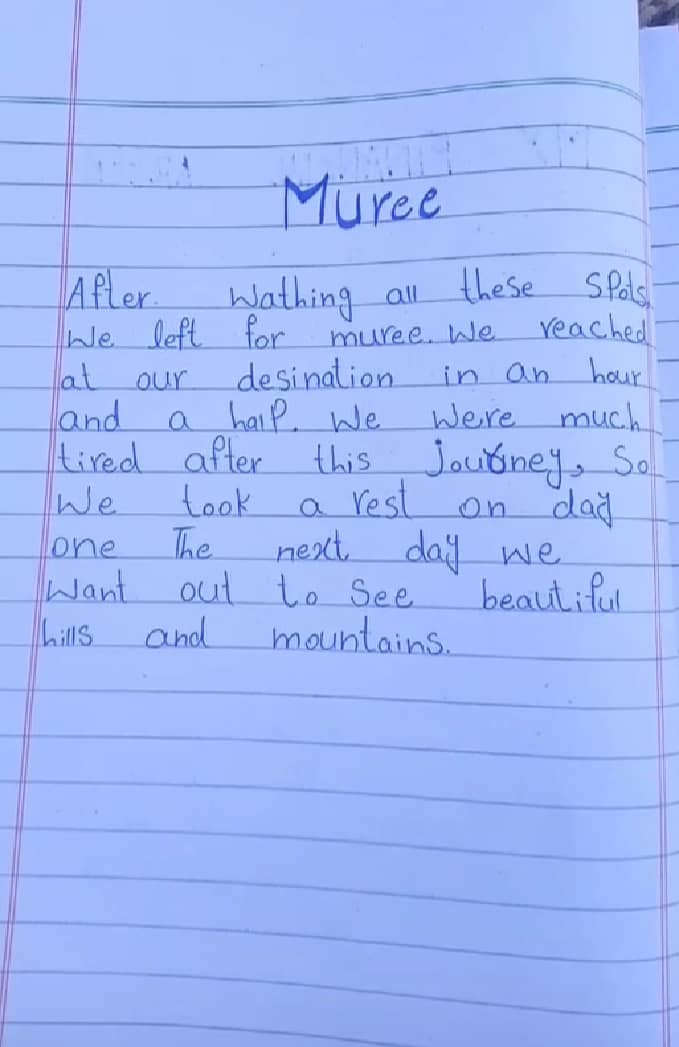 Muree
After. Wathing all these Spots,
We left for muree. We reached
at our desination in an hour
and a half. We Were much
tired after this Journey, So
We took a rest on day
one The next day we
Want out to See beautiful
hills and mountains.